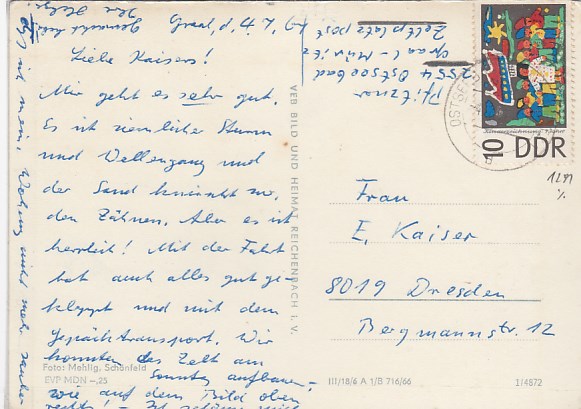 Graal, d. 4.7.
Liebe Kaisers!
Mir geht es sehr gut.
Es ist ziemlicher Sturm
und Wellengang und
der Sand knirscht zw.
den Zähnen. Aber es ist
herrlich! Mit der Fahrt
hat auch alles gut ge-
klappt und mit dem
Gepäcktransport. Wir
konnten das Zelt am
Sonntag aufbauen,
wie auf dem Bild oben
rechts! –
Pfitzner
2554 Ostseebad
Graal-Müritz
Zeltplatzpost
VEB BILD UND HEIMAT REICHENBACH I. V.
10 DDR
Frau
E. Kaiser
8019 Dresden
Bergmannstr. 12
Foto: Mehlig, Schönfeld
EVP MDN –,25
III/18/6 A 1/B 716/66
1/4872